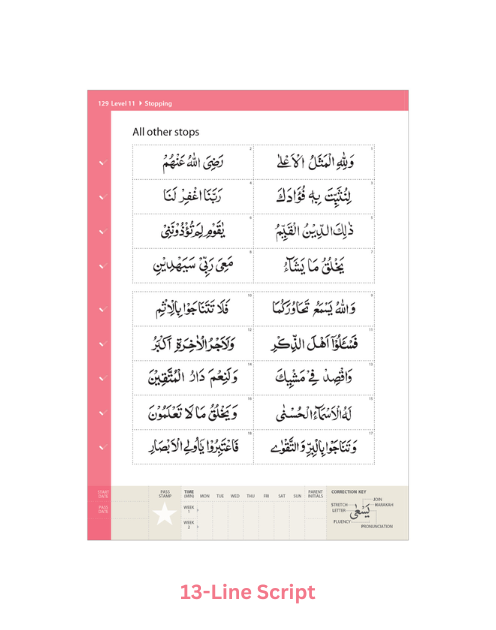 129 Level 11 › Stopping
All other stops
وَلِلّٰهِ الْمَثَلُ الْاَعْلٰى
رَضِىَ اللّٰهُ عَنْهُمْ
لِنُثَبِّتَ بِهٖ فُؤَادَكَ
رَبَّنَا اغْفِرْ لَنَا
ذٰلِكَ الدِّيْنُ الْقَيِّمُ
يٰقَوْمِ لِمَ تُؤْذُوْنَنِىْ
يَخْلُقُ مَا يَشَآءُ
مَعِىَ رَبِّىْ سَيَهْدِيْنِ
وَاللّٰهُ يَسْمَعُ تَحَاوُرَكُمَا
فَلَا تَتَنَاجَوْا بِالْاِثْمِ
فَسْئَلُوْٓا اَهْلَ الذِّكْرِ
وَلَاَجْرُ الْاٰخِرَةِ اَكْبَرُ
وَاقْصِدْ فِىْ مَشْيِكَ
وَلَنِعْمَ دَارُ الْمُتَّقِيْنَ
لَهُ الْاَسْمَآءُ الْحُسْنٰى
وَيَخْلُقُ مَا لَا تَعْلَمُوْنَ
وَتَنَاجَوْا بِالْبِرِّ وَالتَّقْوٰى
فَاعْتَبِرُوْا يٰٓاُولِى الْاَبْصَارِ
START DATE
PASS DATE
PASS STAMP
TIME (MIN) MON TUE WED THU FRI SAT SUN
WEEK 1
WEEK 2
PARENT INITIALS
CORRECTION KEY
JOIN
STRETCH
MARKING
LETTER
يَسْعٰى
FLUENCY
PRONUNCIATION
13-Line Script